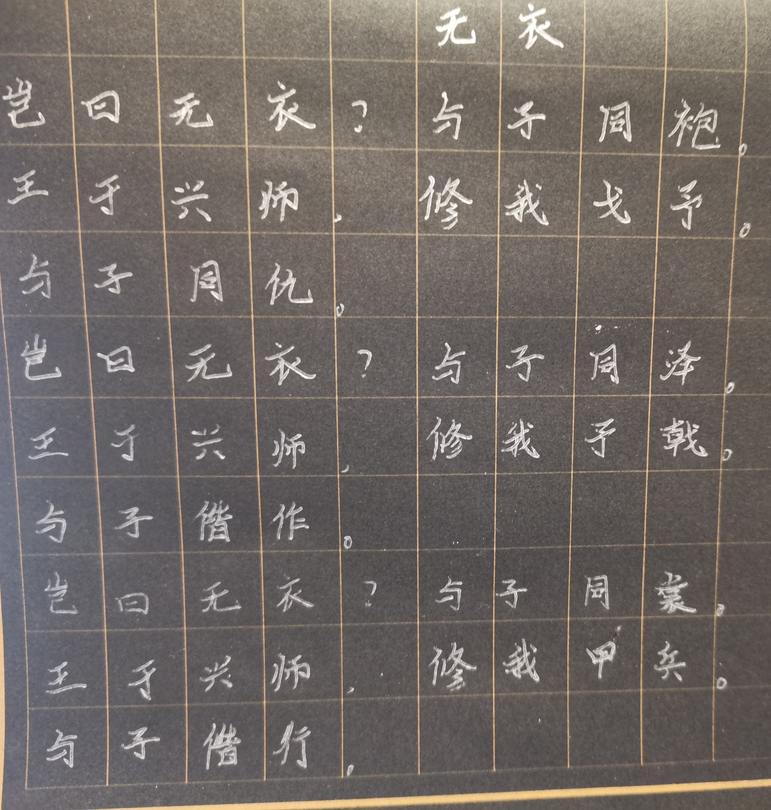 无衣
岂曰无衣?与子同袍。
王于兴师,修我戈予。
与子同仇。
岂曰无衣?与子同泽。
王于兴师,修我予戟。
与子偕作。
岂曰无衣?与子同裳。
王于兴师,修我甲兵。
与子偕行。